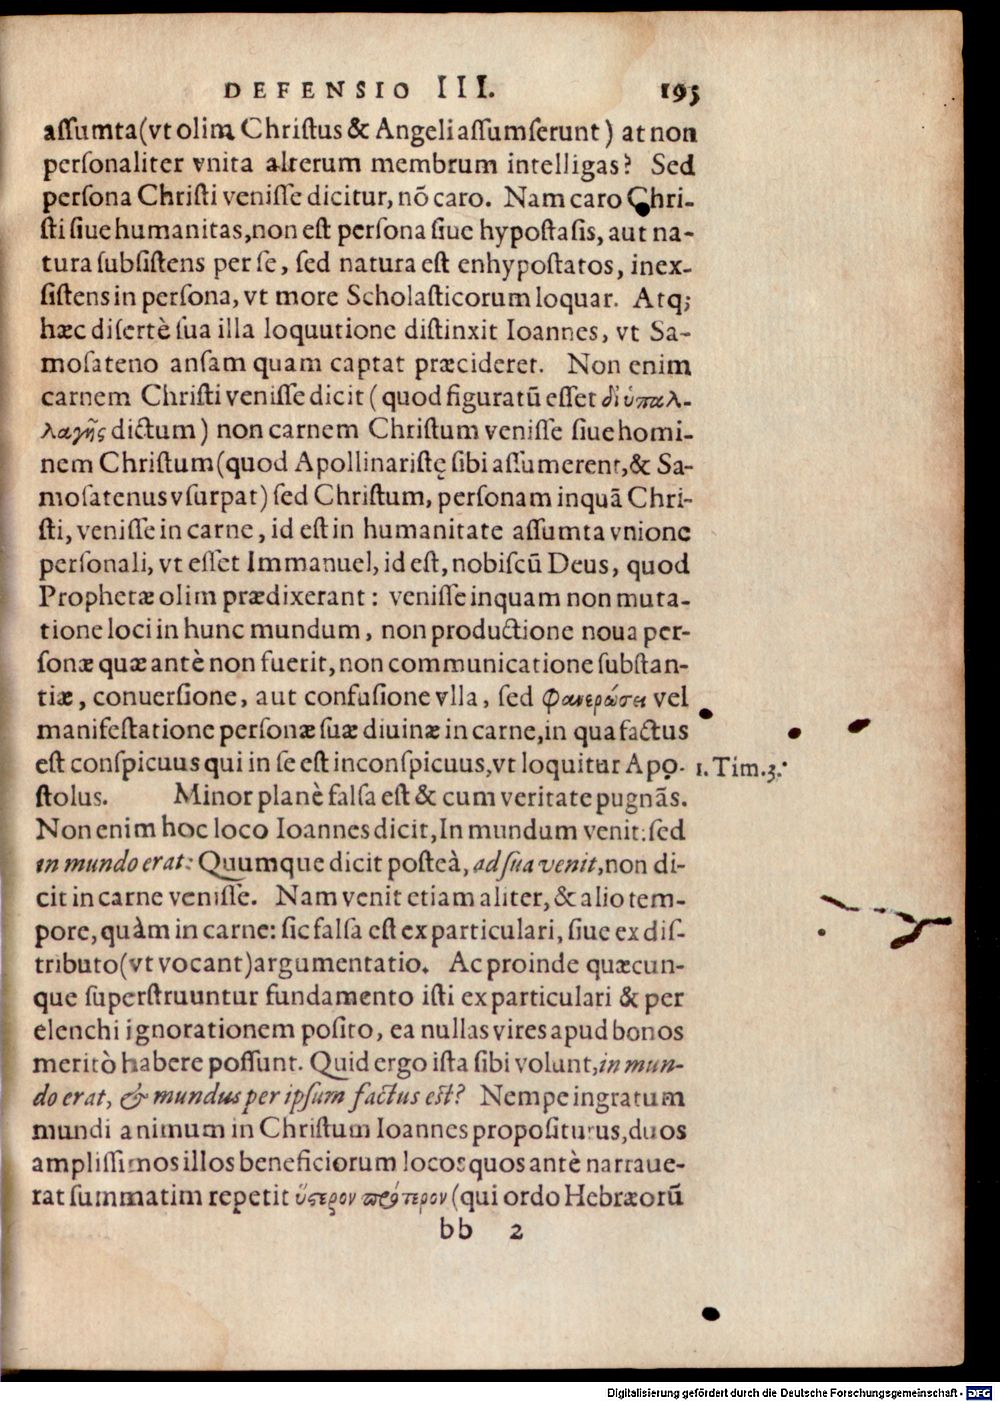 DEFENSIO III. 195
aſſumta(vt olim Chriſtus & Angeli aſſumſerunt) at non
perſonaliter vnita alterum membrum intelligas? Sed
perſona Chriſti veniſſe dicitur, nõ caro. Nam caro Chri-
ſti ſiue humanitas, non eſt perſona ſiue hypoſtaſis, aut na-
tura ſubſiſtens per ſe, ſed natura eſt enhypoſtatos, inex-
ſiſtens in perſona, vt more Scholaſticorum loquar. Atq;
hæc diſertè ſua illa loquutione diſtinxit Ioannes, vt Sa-
moſateno anſam quam captat præcideret. Non enim
carnem Chriſti veniſſe dicit (quod figuratũ eſſet δἰ ὑπαλ-
λαγῆς dictum) non carnem Chriſtum veniſſe ſiue homi-
nem Chriſtum(quod Apollinariſtę ſibi aſſumerent, & Sa-
moſatenus vſurpat) ſed Chriſtum, perſonam inquã Chri-
ſti, veniſſe in carne, id eſt in humanitate aſſumta vnione
perſonali, vt eſſet Immanuel, id eſt, nobiſcũ Deus, quod
Prophetæ olim prædixerant: veniſſe inquam non muta-
tione loci in hunc mundum, non productione noua per-
ſonæ quæ antè non fuerit, non communicatione ſubſtan-
tiæ, conuerſione, aut confuſione vlla, ſed φανερώσει vel
manifeſtatione perſonæ ſuæ diuinæ in carne, in qua factus
eſt conſpicuus qui in ſe eſt inconſpicuus, vt loquitur Apo- 1. Tim. 3.
ſtolus. Minor planè falſa eſt & cum veritate pugnãs.
Non enim hoc loco Ioannes dicit, In mundum venit: ſed
in mundo erat: Quumque dicit poſteà, ad ſua venit, non di-
cit in carne veniſſe. Nam venit etiam aliter, & alio tem-
pore, quàm in carne: ſic falſa eſt ex particulari, ſiue ex diſ-
tributo(vt vocant)argumentatio. Ac proinde quæcun-
que ſuperſtruuntur fundamento iſti ex particulari & per
elenchi ignorationem poſito, ea nullas vires apud bonos
meritò habere poſſunt. Quid ergo iſta ſibi volunt, in mun-
do erat, & mundus per ipſum factus eſt? Nempe ingratum
mundi animum in Chriſtum Ioannes propoſiturus, duos
ampliſſimos illos beneficiorum locos quos antè narraue-
rat ſummatim repetit ὕστερον πρότερον (qui ordo Hebræorũ
bb 2
Digitalisierung gefördert durch die Deutsche Forschungsgemeinschaft - DFG